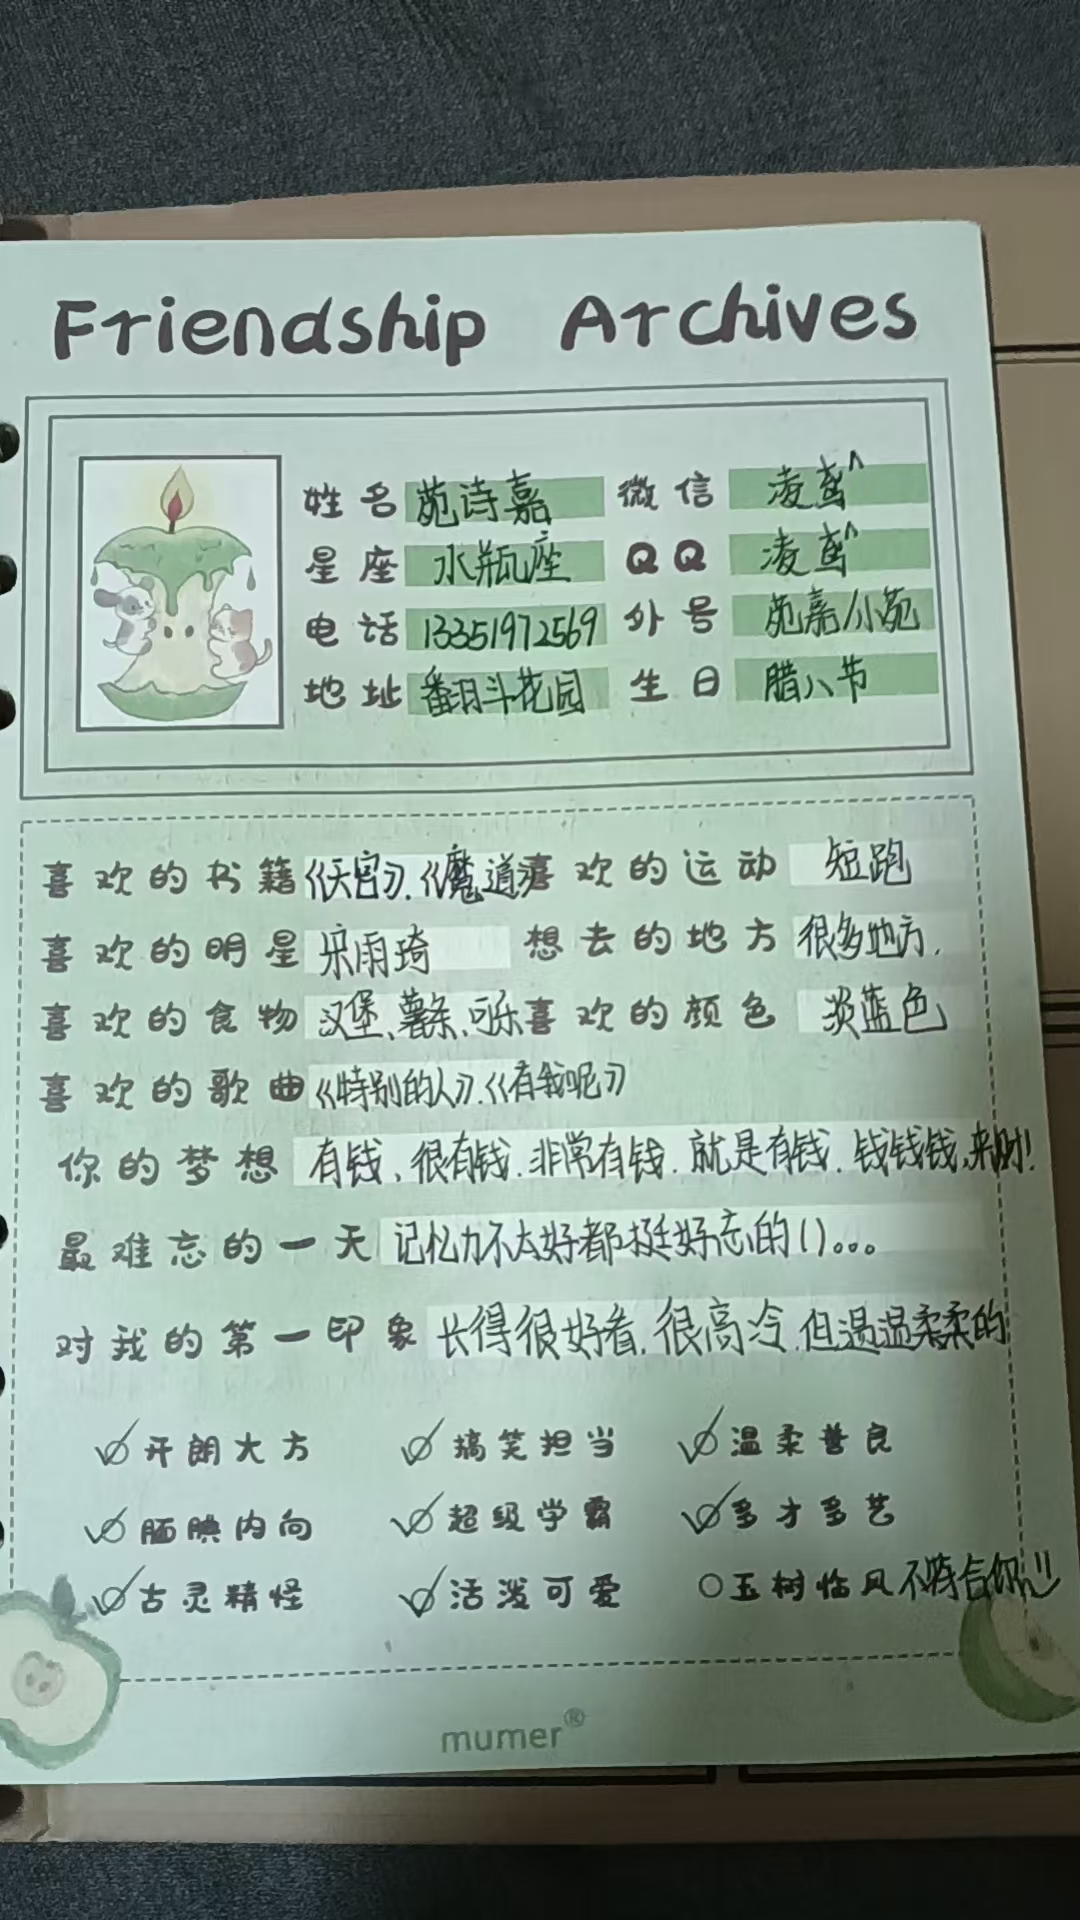 Friendship Archives
姓名 苑诗嘉 微信 凌鸢^
星座 水瓶座 QQ 凌鸢^
电话 13351972569 外号 苑嘉/小苑
地址 翻斗花园 生日 腊八节
喜欢的书籍《天官》.《魔道》 喜欢的运动 短跑
喜欢的明星 宋雨琦 想去的地方 很多地方.
喜欢的食物 汉堡、薯条、可乐 喜欢的颜色 淡蓝色
喜欢的歌曲《特别的人》.《有我呢》
你的梦想 有钱、很有钱.非常有钱.就是有钱.钱钱钱,来财!
最难忘的一天 记忆力不太好都挺好忘的()...
对我的第一印象 长得很好看.很高冷.但温温柔柔的
开朗大方 搞笑担当 温柔善良
腼腆内向 超级学霸 多才多艺
古灵精怪 活泼可爱 玉树临风 不符合你
mumer®